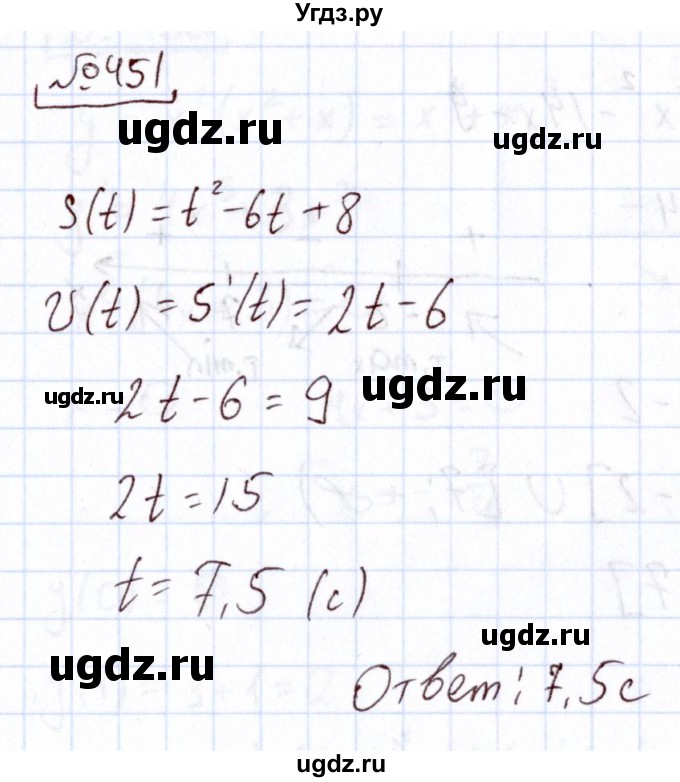 Угдз.ру
№451
ugdz.ru
ugdz.ru
S(t) = t² - 6t + 8
V(t) = S'(t) = 2t - 6
ugdz.ru
2t - 6 = 9
ugdz.ru
2t = 15
t = 7,5 (с)
ugdz.ru
ugdz.ru
Ответ: 7,5с
ugdz.ru